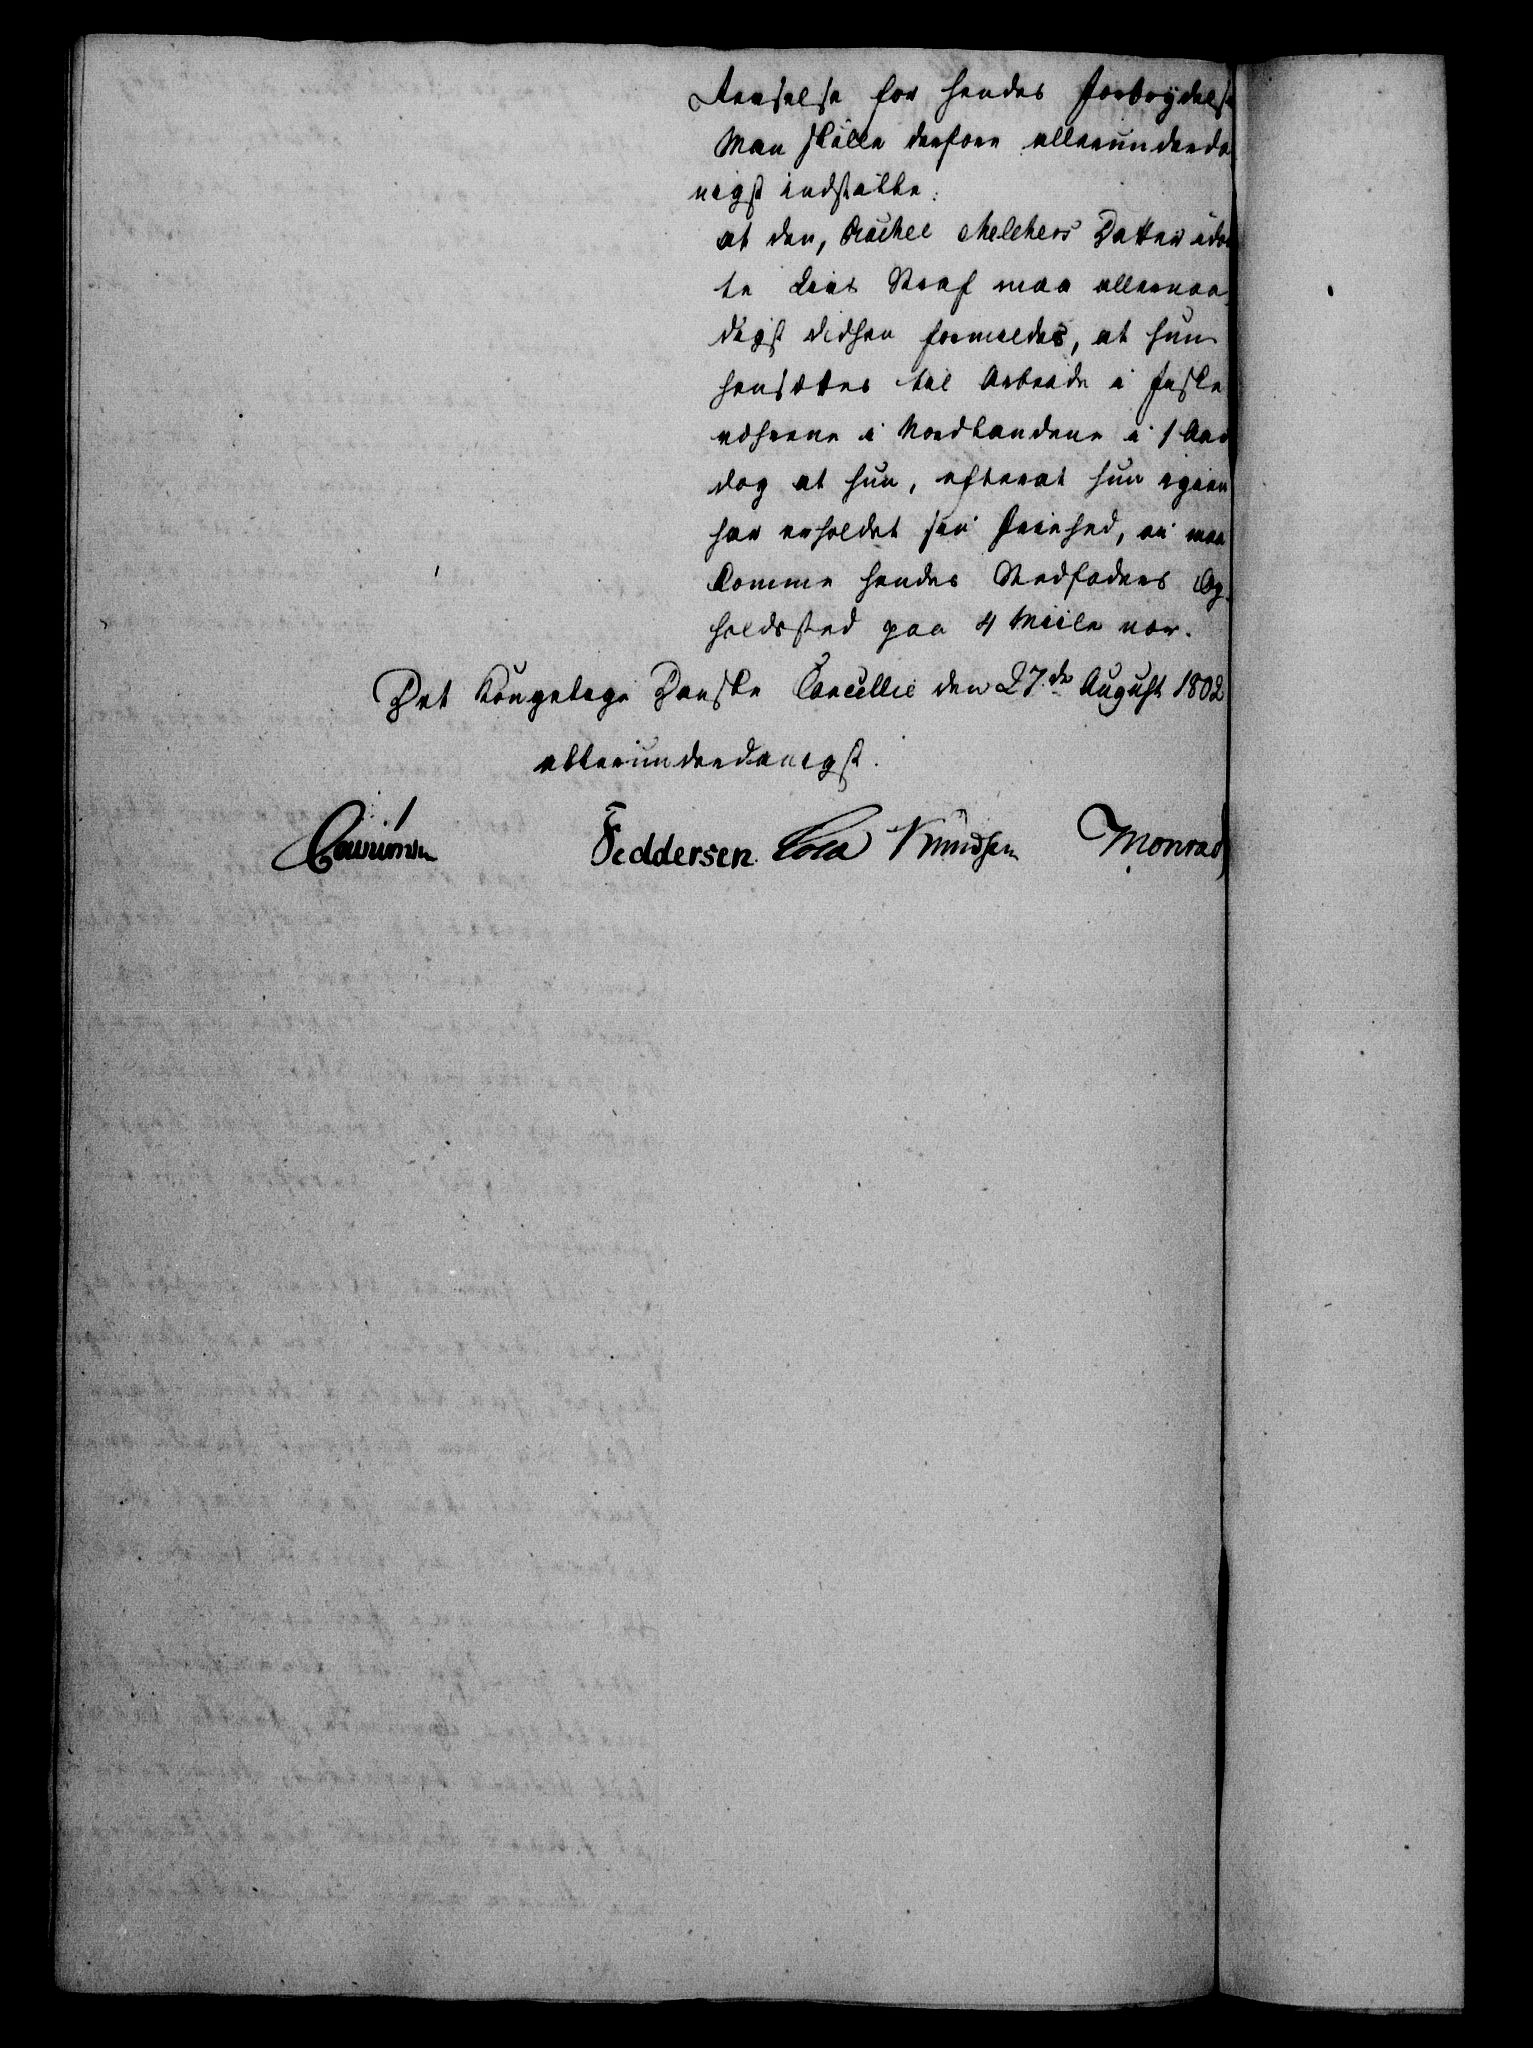 for hendes Forbrydelse
Man skulle derfore allerunderda
nigst indstille:
at den, Rachel Melchers Datter idøm
te Livs Straf maa allernaa
digst didhen formildes, at hun
hensættes til Arbeide i Fiske
værene i Nordlandene i 1 Aar
dog at hun, efterat hun igien
har erholdet sin Friehed, ei maa
komme hendes Stedfaders Op-
holdssted paa 4 Miile nær.
Det Kongelige Danske Cancellie den 27de August 1802
allerunderdanigst.
Feddersen. Cold Knudsen Monrad